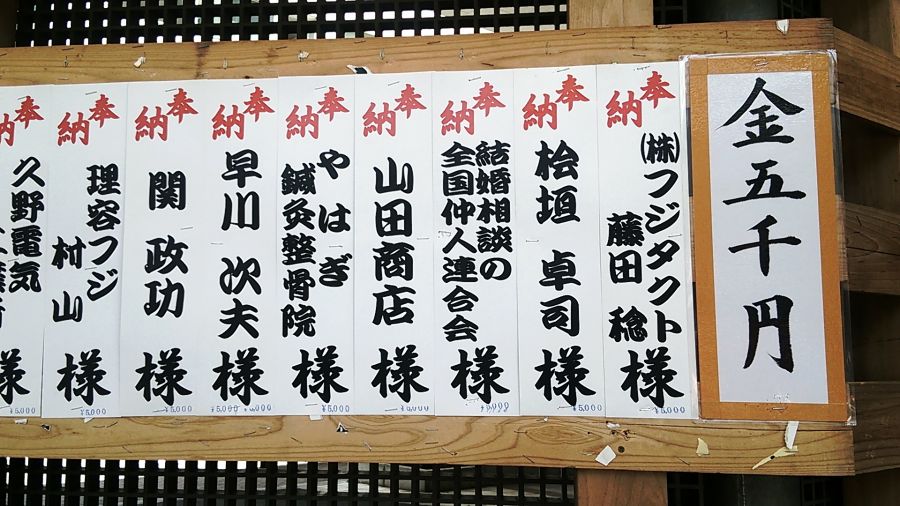 金五千円
奉納
㈱フジタクト
藤田 稔
様
¥5,000
奉納
桧垣 卓司
様
¥5,000
奉納
結婚相談の
全国仲人連合会
様
奉納
山田商店
様
¥5,000
奉納
やはぎ
鍼灸整骨院
様
¥5,000
奉納
早川 次夫
様
¥5,000
奉納
関 政功
様
¥5,000
奉納
理容フジ
村山
様
¥5,000
奉納
久野電気
様
¥5,000